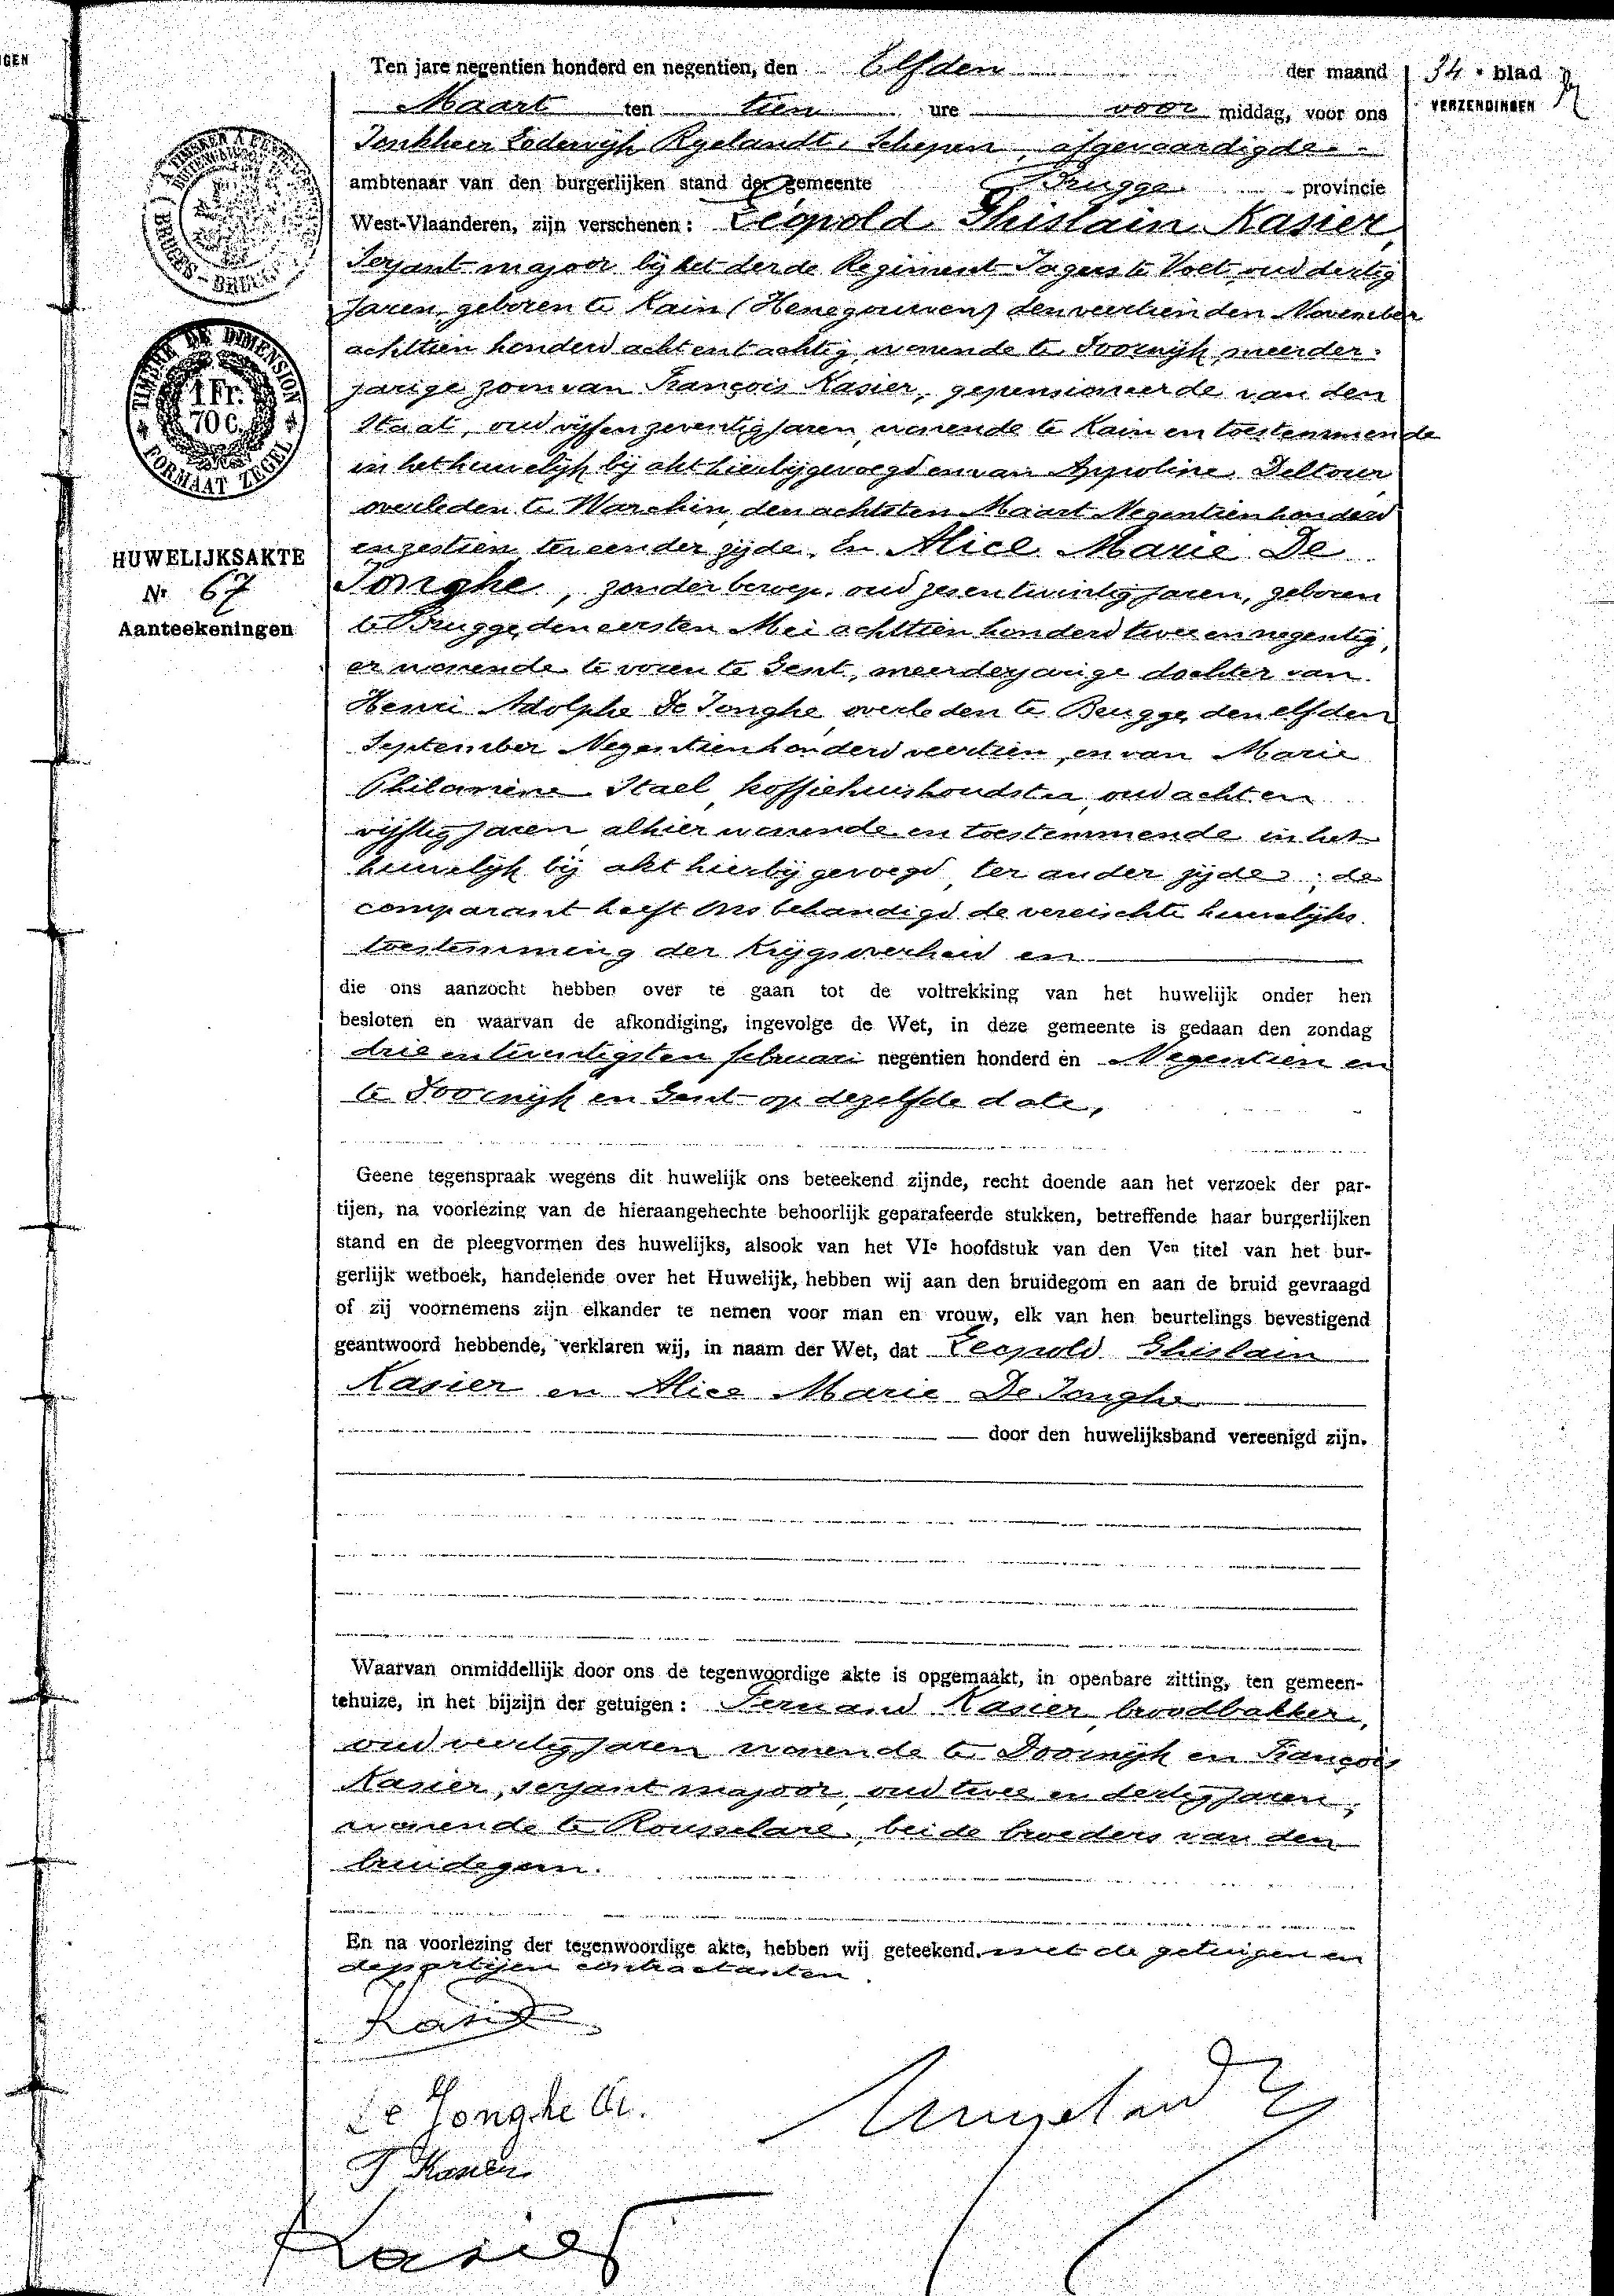 Ten jare negentien honderd en negentien, den Elfden der maand
Maart ten tien ure voor middag, voor ons
Jonkheer Lodewijk Ryelandt, Schepen, afgevaardigde
ambtenaar van den burgerlijken stand der gemeente Brugge provincie
West-Vlaanderen, zijn verschenen: Léopold Ghislain Kasier,
Serjant majoor bij het derde Regiment Jagers te Voet, oud dertig
jaren, geboren te Kain (Henegouwen) den veertienden November
achttien honderd acht en tachtig, wonende te Doornijk, meerder-
jarige zoon van François Kasier, gepensioneerde van den
Staat, oud vijf en zeventig jaren, wonende te Kain en toestemmende
in het huwelijk bij akt hierbijgevoegd en van Appoline Deltour,
overleden te Warchin, den achtsten Maart Negentien honderd
en zestien, ter eender zijde, En Alice Marie De
Jonghe, zonder beroep, oud zes en twintig jaren, geboren
te Brugge, den eersten Mei achttien honderd twee en negentig,
er wonende te voren te Gent, meerderjarige dochter van
Henri Adolphe De Jonghe, overleden te Brugge, den elfden
September Negentien honderd veertien, en van Marie
Philomène Stael, koffiehuishoudster, oud acht en
vijftig jaren, alhier wonende en toestemmende in het
huwelijk bij akt hierbij gevoegd, ter ander zijde; de
comparant heeft ons behandigd de vereischte huwelijks
toestemming der krijgsoverheid en
die ons aanzocht hebben over te gaan tot de voltrekking van het huwelijk onder hen
besloten en waarvan de afkondiging, ingevolge de Wet, in deze gemeente is gedaan den zondag
drie en twintigsten februari negentien honderd en Negentien en
te Doornijk en Gent op dezelfde date,
Geene tegenspraak wegens dit huwelijk ons beteekend zijnde, recht doende aan het verzoek der par-
tijen, na voorlezing van de hieraangehechte behoorlijk geparafeerde stukken, betreffende haar burgerlijken
stand en de pleegvormen des huwelijks, alsook van het VIe hoofdstuk van den Ven titel van het bur-
gerlijk wetboek, handelende over het Huwelijk, hebben wij aan den bruidegom en aan de bruid gevraagd
of zij voornemens zijn elkander te nemen voor man en vrouw, elk van hen beurtelings bevestigend
geantwoord hebbende, verklaren wij, in naam der Wet, dat Leopold Ghislain
Kasier en Alice Marie De Jonghe
door den huwelijksband vereenigd zijn.
Waarvan onmiddellijk door ons de tegenwoordige akte is opgemaakt, in openbare zitting, ten gemeen-
tehuize, in het bijzijn der getuigen: Fernand Kasier, broodbakker,
oud veertig jaren wonende te Doornijk en François
Kasier, serjant majoor, oud twee en dertig jaren,
wonende te Rousselare, beide broeders van den
bruidegom.
En na voorlezing der tegenwoordige akte, hebben wij geteekend, met de getuigen en
de partijen contractanten.
Kasier
De Jonghe A.
F Kasier
Kasier
Ryelandt
34e blad
VERZENDINGEN
TIMBRE DE DIMENSION
1 Fr.
70 C.
FORMAAT ZEGEL
HUWELIJKSAKTE
Nr 67
Aanteekeningen